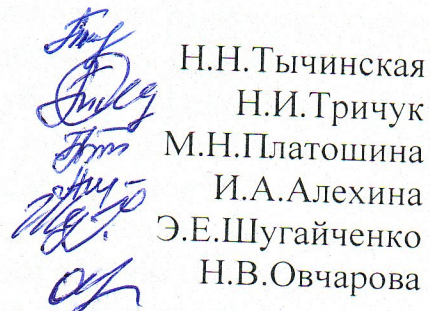 Н.Н.Тычинская
Н.И.Тричук
М.Н.Платошина
И.А.Алехина
Э.Е.Шугайченко
Н.В.Овчарова